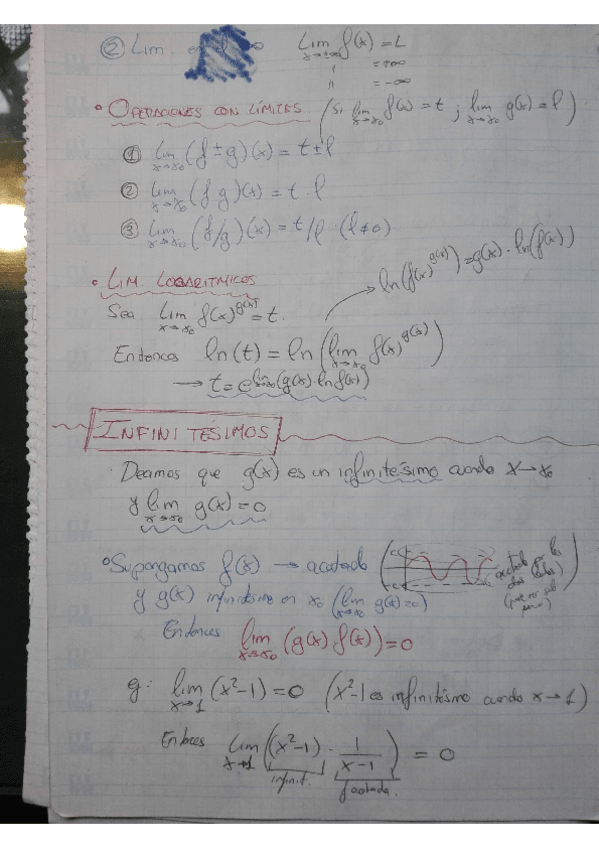 ② Lim
Lim f(x) = L
x→±∞
" = +∞
" = -∞
• OPERACIONES CON LÍMITES (Si lim x→x₀ f(x) = t ; lim x→x₀ g(x) = l)
① Lim x→x₀ (f ± g)(x) = t ± l
② Lim x→x₀ (f g)(x) = t · l
③ Lim x→x₀ (f/g)(x) = t/l (l≠0)
• LIM. LOGARITMICOS
ln(f(x)^g(x)) = g(x) · ln(f(x))
Sea Lim x→x₀ f(x)^g(x) = t.
Entonces ln(t) = ln(lim x→x₀ f(x)^g(x))
→ t = e^lim x→x₀ (g(x)·ln f(x))
INFINITÉSIMOS
· Decimos que g(x) es un infinitésimo cuando x→x₀
y lim x→x₀ g(x) = 0
• Supongamos f(x) → acotada
y g(x) infinitésimo en x₀ (lim x→x₀ g(x)=0)
acotada por los
dos lados
Entonces lim x→x₀ (g(x) f(x)) = 0
eg: lim x→1 (x²-1) = 0 (x²-1 es infinitésimo cuando x→1)
Entonces lim x→1 ((x²-1) · 1/(x-1)) = 0
infinit.
f acotada.